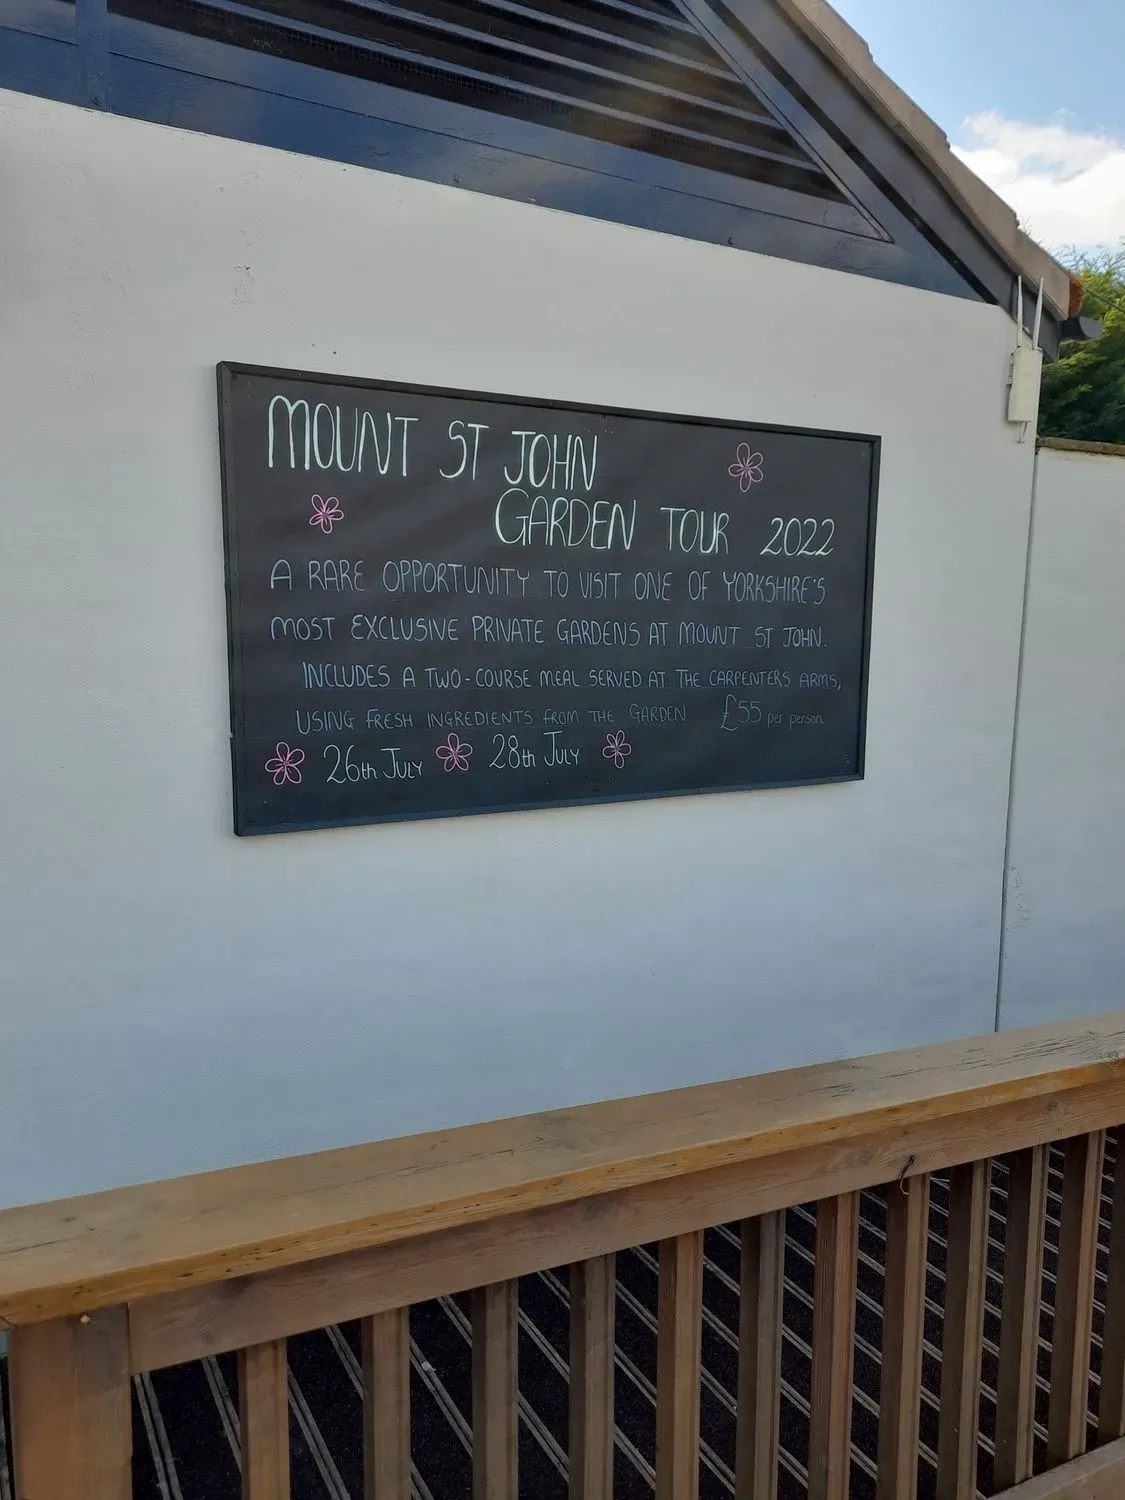 MOUNT ST JOHN
GARDEN TOUR 2022
A RARE OPPORTUNITY TO VISIT ONE OF YORKSHIRE'S
MOST EXCLUSIVE PRIVATE GARDENS AT MOUNT ST JOHN.
INCLUDES A TWO-COURSE MEAL SERVED AT THE CARPENTERS ARMS,
USING FRESH INGREDIENTS FROM THE GARDEN. £55 per person
26th JULY 28th JULY